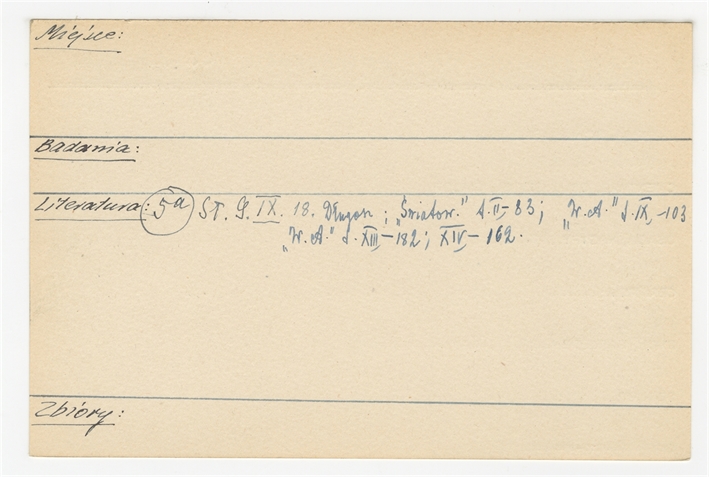 Miejsce:
Badania:
Literatura: 5a ST. G. IX. 18. Długosz; „Światow." t. II, - 83; „W. A." t. IX, - 103
„W. A." t. XIII, - 182; XIV, - 162.
Zbiory: